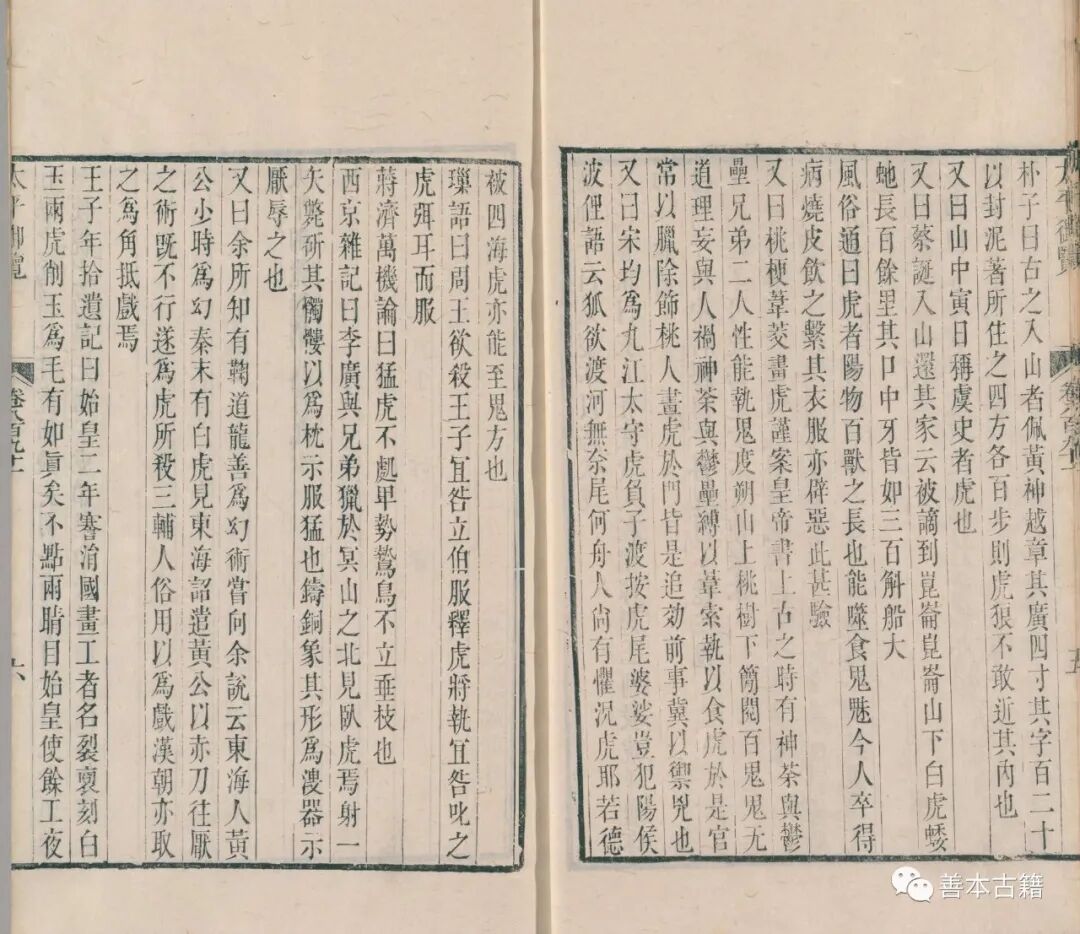 朴子曰古之入山者佩黃神越章其廣四寸其字百二十
以封泥著所住之四方各百步則虎狼不敢近其內也
又曰山中寅日稱虞史者虎也
又曰蔡誕入山還其家云被謫到崑崙崑崙山下白虎蜲
虵長百餘里其口中牙皆如三百斛船大
風俗通曰虎者陽物百獸之長也能噬食鬼魅今人卒得
病燒皮飲之繫其衣服亦辟惡此甚驗
又曰桃梗葦茭畫虎謹案皇帝書上古之時有神荼與鬱
壘兄弟二人性能執鬼度朔山上桃樹下簡閱百鬼鬼无
道理妄與人禍神荼與鬱壘縛以葦索執以食虎於是官
常以臘除飾桃人畫虎於門皆是追効前事冀以禦兇也
又曰宋均為九江太守虎負子渡按虎尾婆娑豈犯陽侯
波俚語云狐欲渡河無奈尾何舟人尚有懼況虎耶若德
五
被四海虎亦能至鬼方也
璅語曰周王欲殺王子宜咎立伯服釋虎將執宜咎叱之
虎弭耳而服
蔣濟萬機論曰猛虎不處卑勢鷙鳥不立垂枝也
西京雜記曰李廣與兄弟獵於冥山之北見臥虎焉射一
矢斃斫其髑髏以為枕示服猛也鑄銅象其形為溲器示
厭辱之也
又曰余所知有鞠道龍善為幻術嘗向余說云東海人黃
公少時為幻秦末有白虎見東海詔遣黃公以赤刀往厭
之術既不行遂為虎所殺三輔人俗用以為戲漢朝亦取
之為角抵戲焉
王子年拾遺記曰始皇二年騫消國畫工者名裂裔刻白
玉兩虎削玉為毛有如眞矣不點兩睛目始皇使餘工夜
太平御覽
六
善本古籍